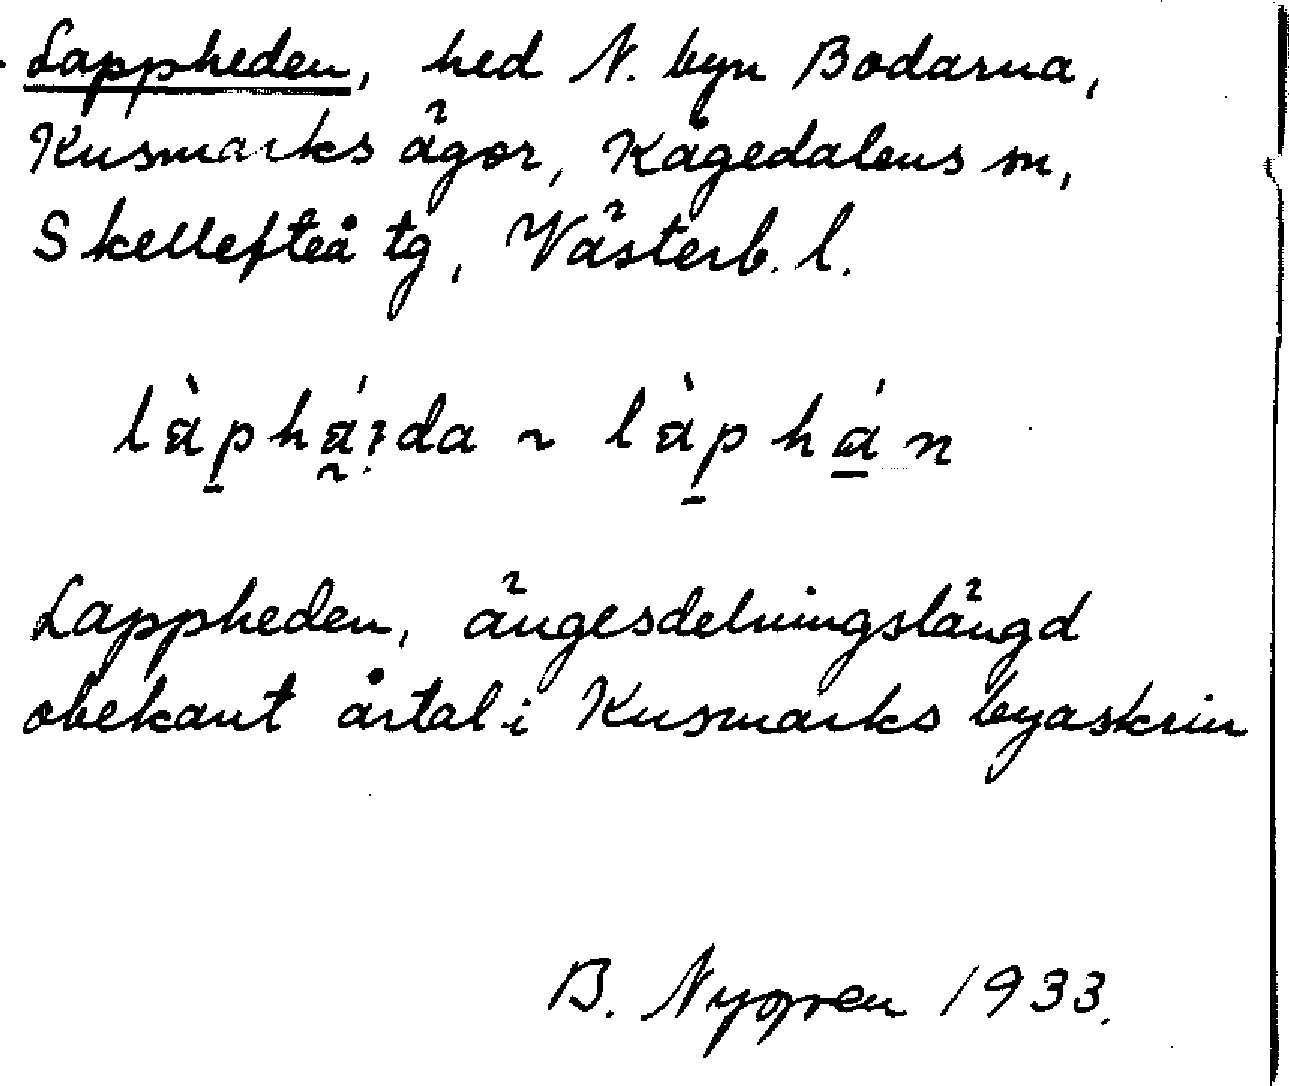 Lappheden, hed N. byn Bodarna,
Kusmarks ägor, Kågedalens sn,
Skellefteå tg, Västerb. l.
Lappheden, ängesdelningslängd
obekant årtal i Kusmarks byaskrin
B. Nygren 1933.